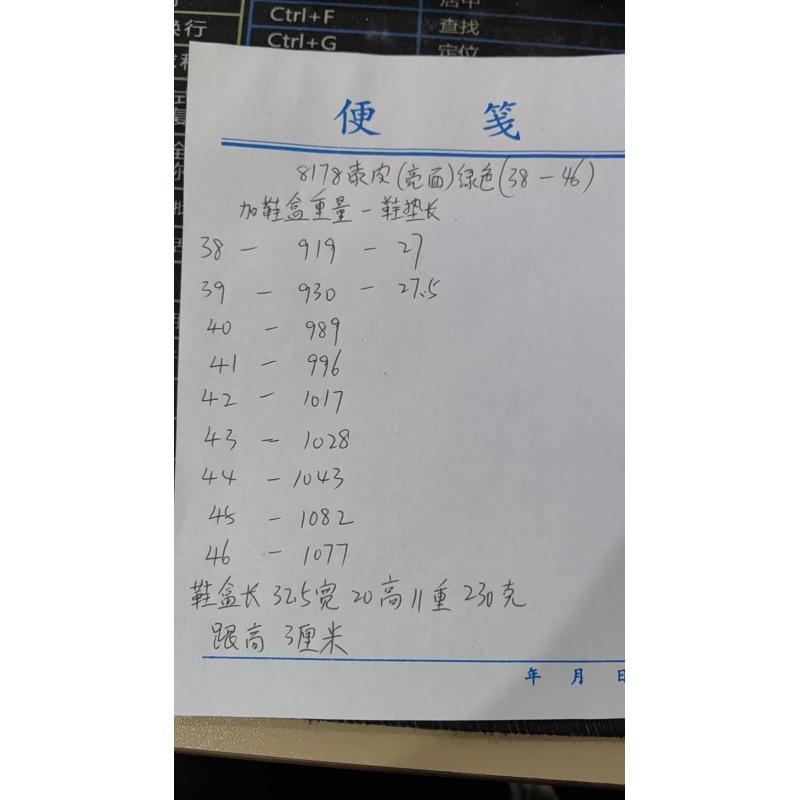 居中
Ctrl+F 查找
换行
Ctrl+G 定位
便 笺
8178漆皮(亮面)绿色(38-46)
加鞋盒重量-鞋垫长
38 - 919 - 27
39 - 930 - 27.5
40 - 989
41 - 996
42 - 1017
43 - 1028
44 - 1043
45 - 1082
46 - 1077
鞋盒长 32.5宽 20高11重 230克
跟高 3厘米
年 月 日